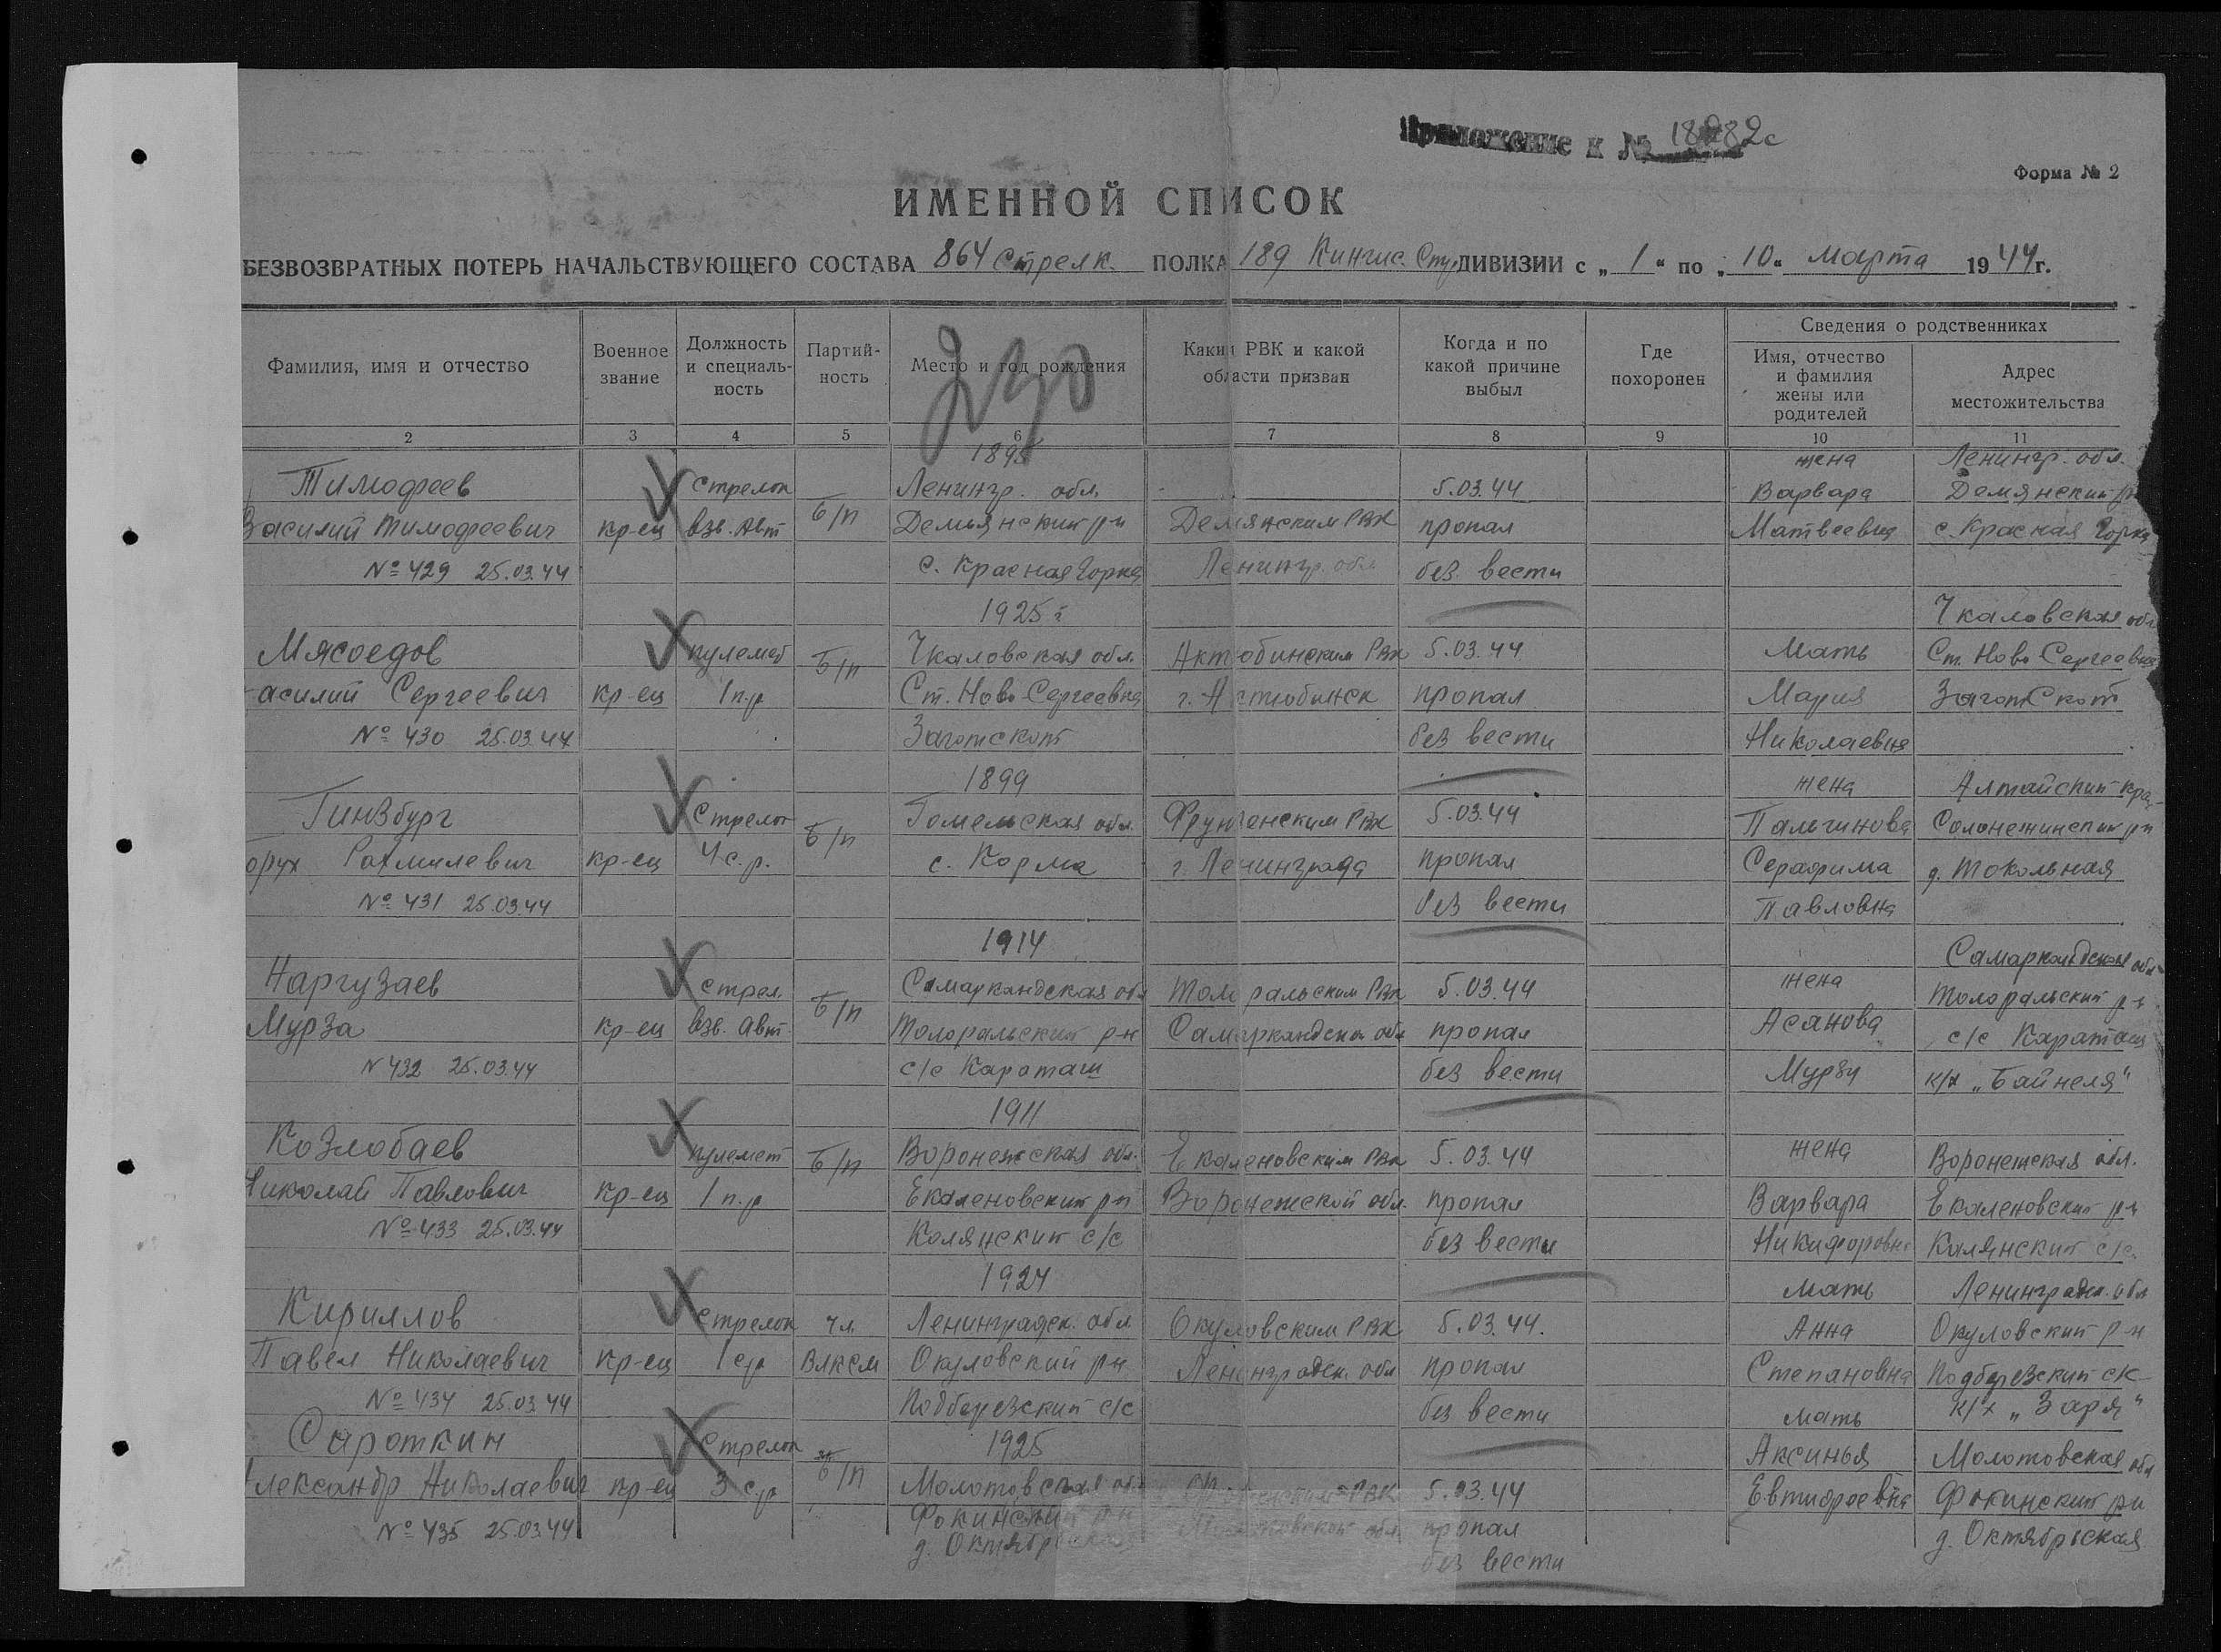 Приложение к № 18282с
Форма № 2
ИМЕННОЙ СПИСОК
БЕЗВОЗВРАТНЫХ ПОТЕРЬ НАЧАЛЬСТВУЮЩЕГО СОСТАВА 864 стрелк. ПОЛКА 189 Кингис. Стр ДИВИЗИИ с „1“ по „10“ марта 1944г.
Фамилия, имя и отчество
Военное звание
Должность и специаль-ность
Партий-ность
Место и год рождения
Каким РВК и какой области призван
Когда и по какой причине выбыл
Где похоронен
Сведения о родственниках
Имя, отчество и фамилия жены или родителей
Адрес местожительства
2 3 4 5 6 7 8 9 10 11
290
1895 жена Ленингр. обл.
Тимофеев стрелок Ленингр. обл. 5.03.44 Варвара Демянский р-н
Василий Тимофеевич кр-ец взв. Авт б/п Демьянский р-н Демянским РВК пропал Матвеевна с. Красная Горка
№ 429 25.03.44 с. Красная Горка Ленингр. обл без вести
1925 г Чкаловская обл
Мясоедов пулемет б/п Чкаловская обл. Актюбинским РВК 5.03.44 Мать Ст. Ново Сергеевка
асилий Сергеевич кр-ец 1 п.р Ст. Ново Сергеевка г. Актюбинск пропал Мария ЗаготСкот
№ 430 25.03.44 Заготскот без вести Николаевна
1899 жена Алтайский край
Гинзбург Стрелок б/п Гомельская обл. Фрунзенским РВК 5.03.44 Пальчинова Солонешинский р-н
орух Рахмилевич кр-ец 4 с.р. с. Корма г. Ленинграда пропал Серафима д. Токольная
№ 431 25.03.44 без вести Павловна
1914 Самаркандская обл
Наргузаев стрел. б/п Самаркандская обл Толоральским РВК 5.03.44 жена Толоральский р-н
Мурза кр-ец взв. Авт. Толоральский р-н Самаркандской обл пропал Асанова с/с Караташ
№ 432 25.03.44 с/с Караташ без вести Мурзы к/х „Байнеля“
1911
Козлобаев пулемет б/п Воронежская обл. Екаленовским РВК 5.03.44 жена Воронежская обл.
Николай Павлович кр-ец 1 п.р Екаленовский р-н Воронежской обл. пропал Варвара Екаленовский р-н
№ 433 25.03.44 Колянский с/с без вести Никифоровна Колянский с/с.
1924 Мать Ленинградск. обл
Кириллов Стрелок чл. Ленинградск. обл Окуловским РВК 5.03.44. Анна Окуловский р-н
Павел Николаевич кр-ец 1 ср ВЛКСМ Окуловский р-н Ленинградск. обл пропал Степановна Подберезский с/с
№ 434 25.03.44 Подберезский с/с без вести к/х „Заря“
Сироткин Стрелок б/п 1925 мать Аксинья Молотовская обл
лександр Николаевич кр-ец 3 с.р Молотовская обл РВК 5.03.44 Евтифеевна Фокинский р-н
№ 435 25.03.44 Фокинский р-н Молотовской обл. пропал д. Октябрьская
д. Октябрьская без вести